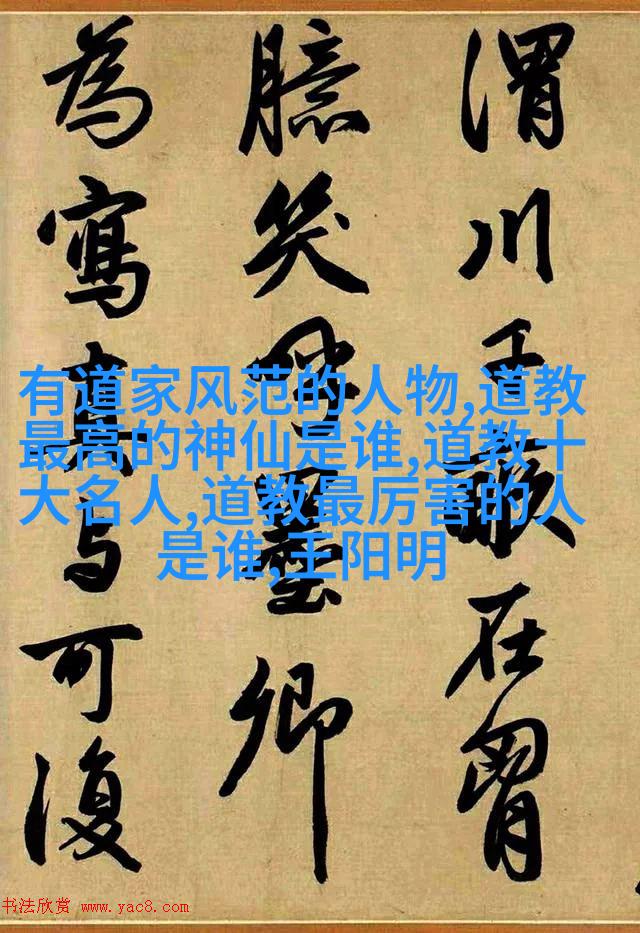 渭川千畝在胷
臆笑呼墨卿
為寫真与可復
有道家风范的人物,道教
最高的神仙是谁,道教十
大名人,道教最厉害的人
是谁,王阳明
书法欣赏 www.yac8.com